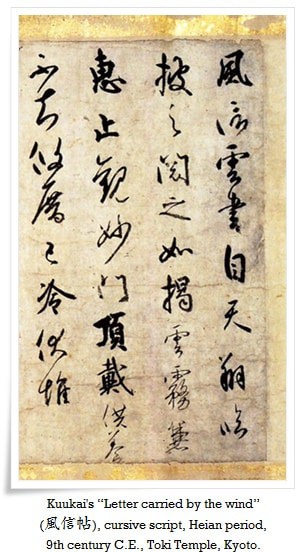 風信雲書自天翔臨
披之閲之如掲雲霧兼
惠止観妙門頂戴供養
不知攸厝已冷伏惟
Kuukai's "Letter carried by the wind"
(風信帖), cursive script, Heian period,
9th century C.E., Toki Temple, Kyoto.